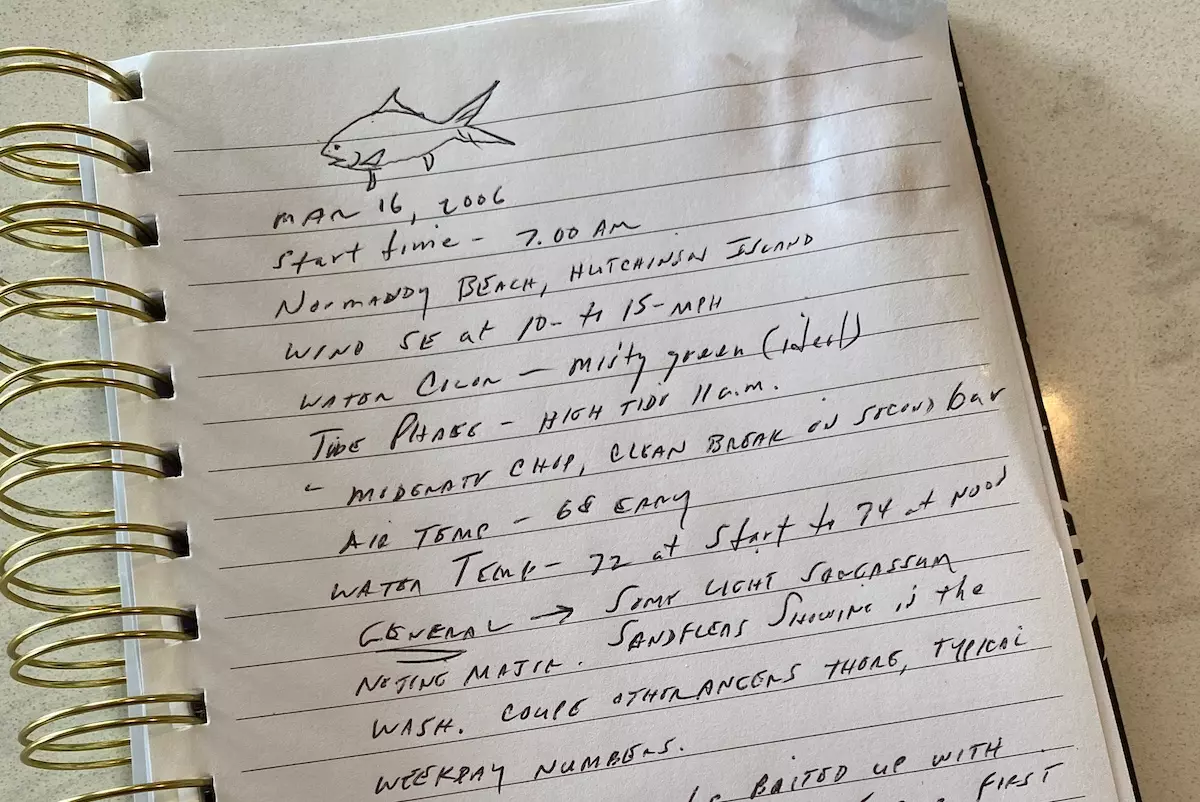 MAR 16, 2006
Start time - 7.00 AM
Normandy Beach, Hutchinson Island
WIND SE at 10- to 15-MPH
WATER COLOR - misty green (ideal)
TIDE PHASE - HIGH TIDE 11 a.m.
" MODERATE CHOP, CLEAN BREAK ON SECOND bar
AIR TEMP - 68 EARLY
WATER TEMP - 72 at start to 74 at NOON
GENERAL → SOME LIGHT SARGASSUM
NOTING MAJOR. SANDFLEAS SHOWING is the
WASH. COUPE OTHER ANGERS THERE, TYPICAL
WEEKDAY NUMBERS.
BAITED UP WITH
FIRST